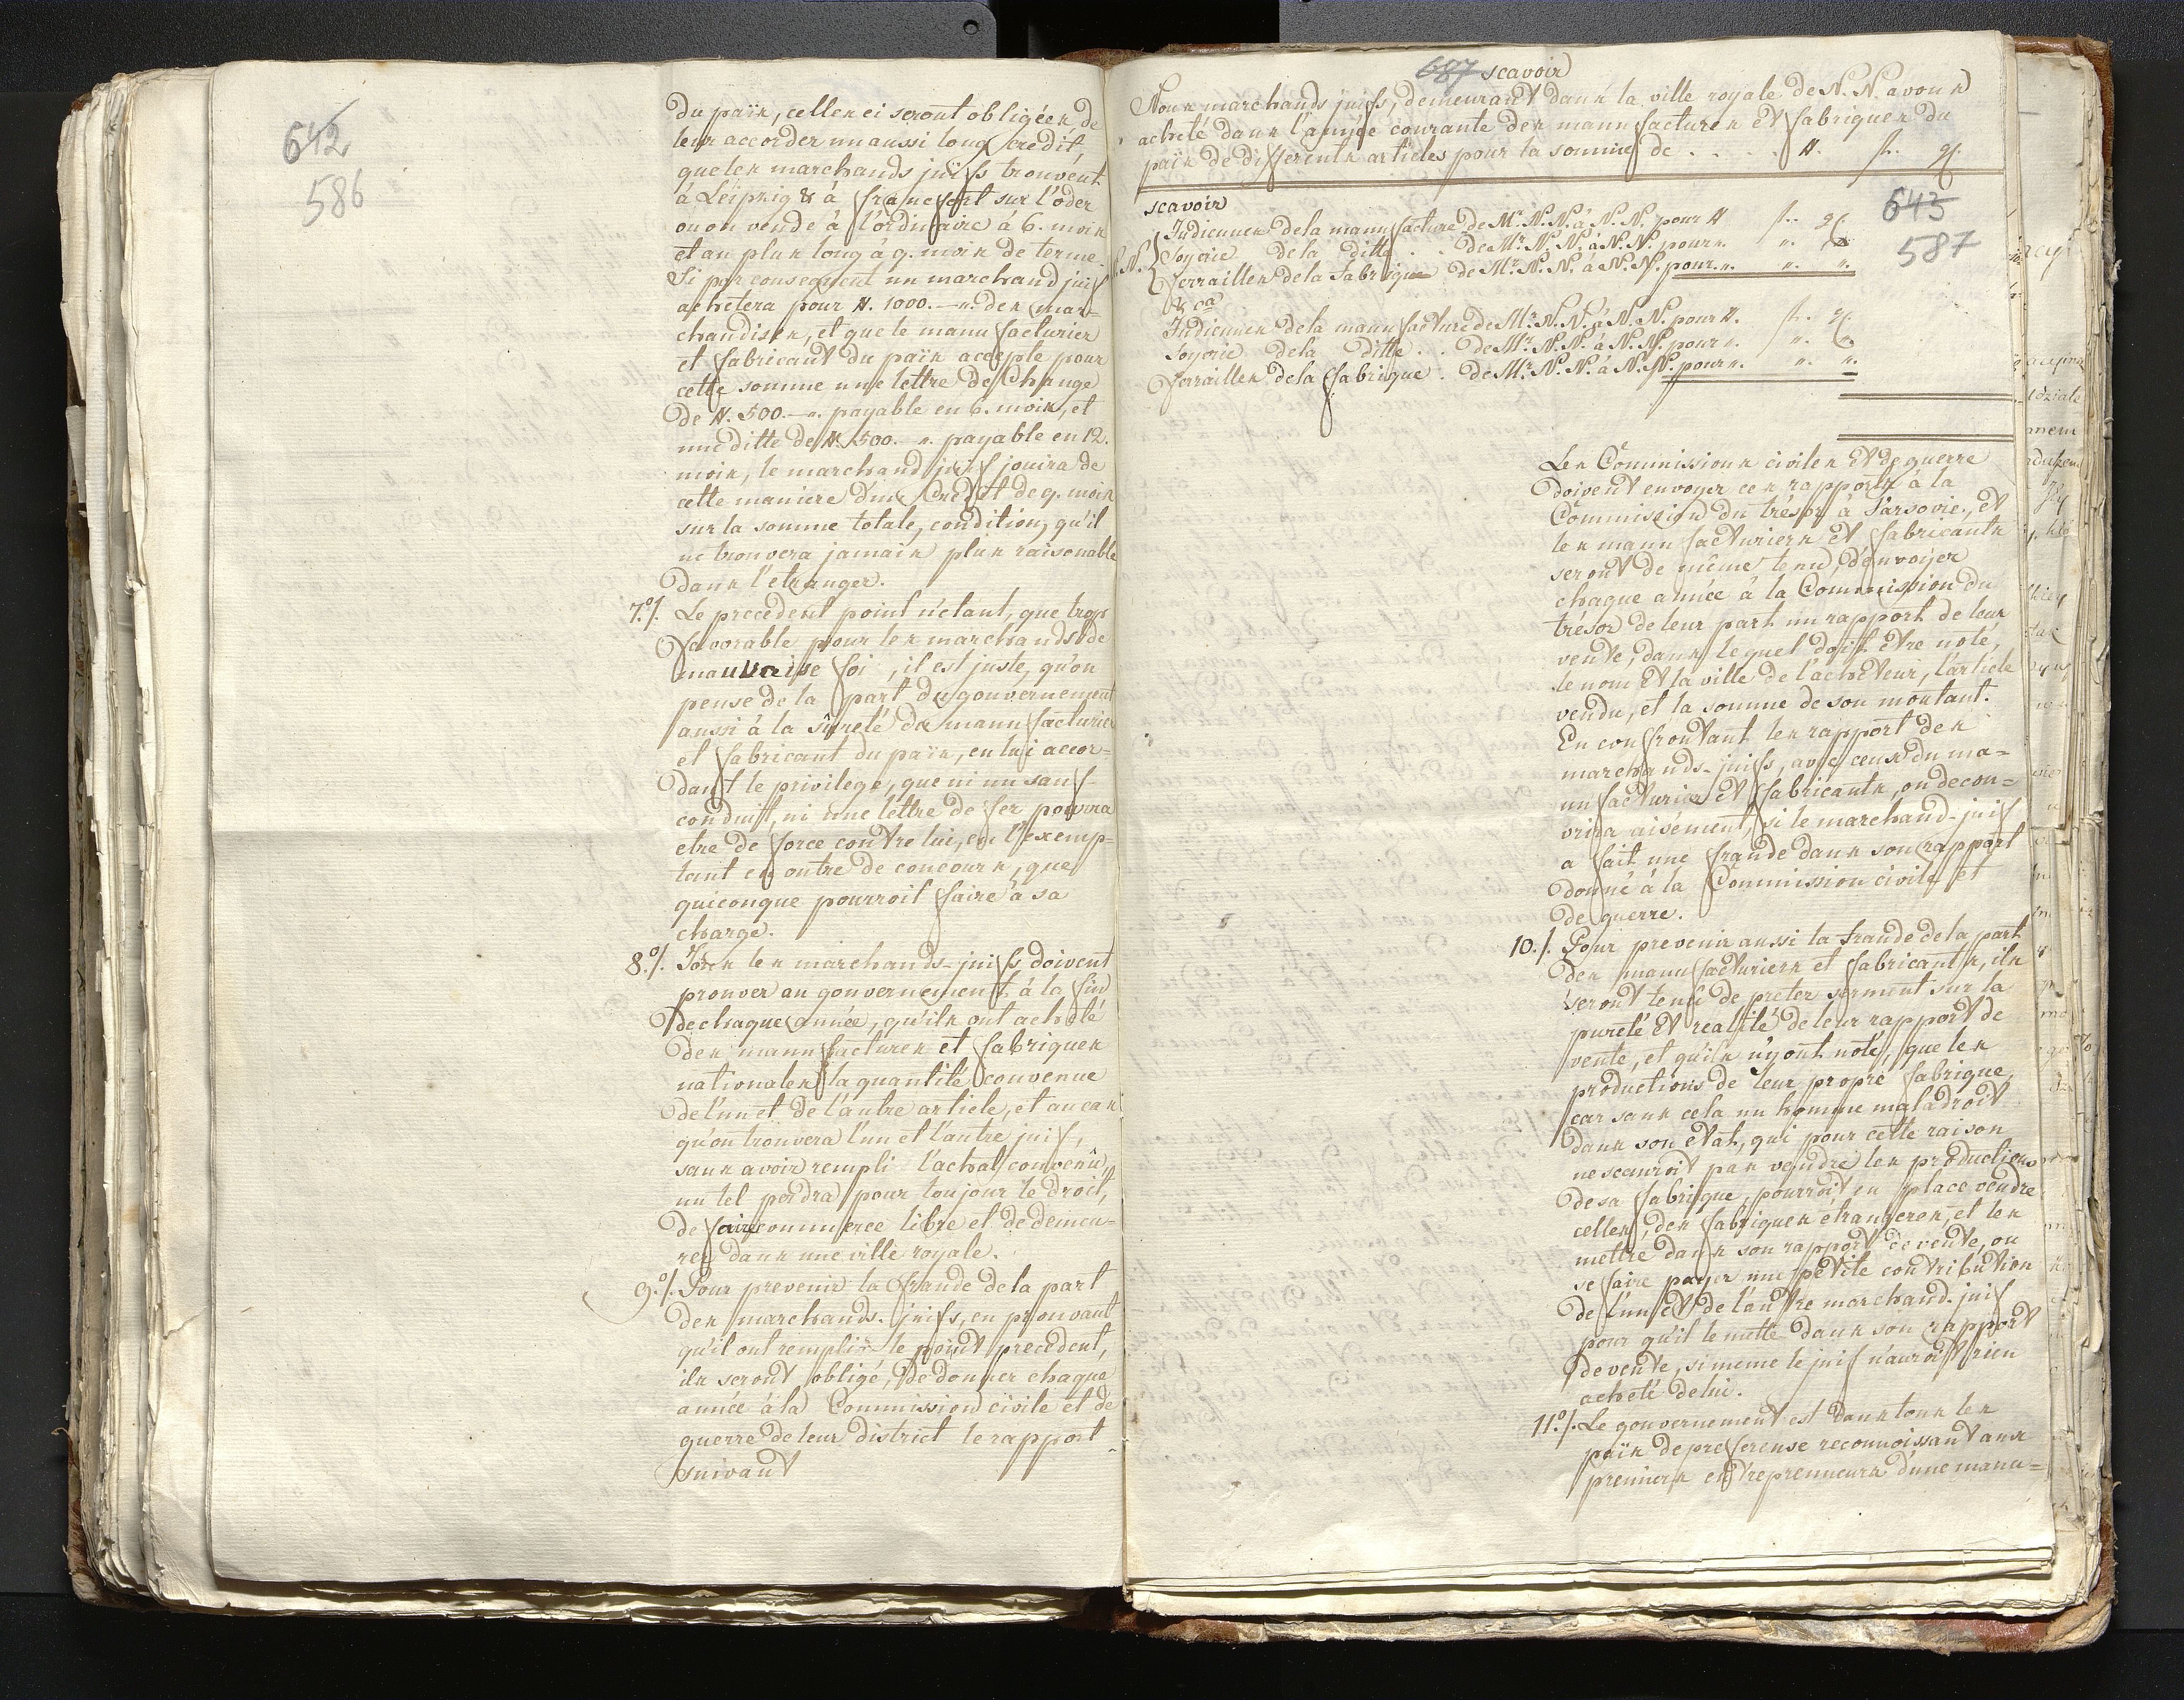 642
586
du païs, celles ci seront obligées de
leur accorder un aussi long credit,
que les marchands juifs trouvent
à Leipzig & à francfort sur l'oder
ou on vende à l'ordinaire à 6. mois
et au plus long à 9. mois de terme.
Si par consequent un marchand juif
achetera pour #. 1000.—". des mar=
chandises, et que le manufacturier
et fabricant du païs accepte pour
cette somme une lettre de Change
de #. 500.—". payable en 6. mois, et
une ditte de #. 500.—". payable en 12.
mois, le marchand juif jouira de
cette maniere d'un Credit de 9. mois
sur la somme totale, condition, qu'il
ne trouvera jamais plus raisonable
dans l'etranger.
7.º/. Le precedent point n'etant, que trop
favorable pour les marchands de
mauvaise foi, il est juste, qu'on
pense de la part du gouvernement
aussi à la sûreté du manufacturier
et fabricant du païs, en lui accor=
dant le privilege, que ni un sauf
conduit, ni une lettre de fer pourra
etre de force contre lui, en l'exemp=
tant en outre de concours, que
quiconque pourroit faire à sa
charge.
8.º/. Tous les marchands-juifs doivent
prouver au gouvernement à la fin
de chaque année, qu'ils ont acheté
des manufactures et fabriques
nationales la quantité convenue
de l'un et de l'autre article, et au cas
qu'on trouvera l'un et l'autre juif,
sans avoir rempli l'achat convenû,
un tel perdra pour toujour le droit,
de faire commerce libre et de demeu=
rer dans une ville royale.
9.º/. Pour prevenir la fraude de la part
des marchands-juifs, en prouvant
qu'il ont remplis le point precedent,
ils seront obligé, de donner chaque
année à la Commission civile et de
guerre de leur district le rapport
suivant
687 scavoir
Nous marchands juifs, demeurant dans la ville royale de N. N. avons
acheté dans l'année courante des manufactures et fabriques du
païs de differents articles pour la somme de . . . . . #. fl. gl.
643
587
scavoir
Indiennes de la manufacture de Mr. N. N. à N. N. pour # fl. gl.
N. Soyerie de la ditte . . de Mr. N. N. à N. N. pour ". ". ".
ferrailles de la Fabrique de Mr. N. N. à N. N. pour ". ". ".
& ca
Indiennes de la manufacture de Mr. N. N. à N. N. pour #. fl. gl.
Soyerie de la ditte . . de Mr. N. N. à N. N. pour ". ". ".
ferrailles de la fabrique . de Mr. N. N. à N. N. pour ". ". ".
Les Commissions civiles et de guerre
doivent envoyer ces rapports à la
Commission du trésor à Varsovie, et
les manufacturiers et fabricants
seront de même tenu, d'envoyer
chaque année à la Commission du
trésor de leur part un rapport de leur
vente, dans lequel doit être noté,
le nom et la ville de l'acheteur, l'article
vendu, et la somme de son montant.
En confrontant les rapport des
marchands-juifs, avec ceux du ma=
nufacturier et fabricants, on decou=
vrira aisément, si le marchand-juif
a fait une fraude dans son rapport
donné à la Commission civile et
de guerre.
10./. Pour prevenir aussi la fraude de la part
des manufacturiers et fabricants, ils
seront tenû de preter serment sur la
pureté et realité de leur rapport de
vente, et qu'ils n'y ont noté, que les
productions de leur propre fabrique,
car sans cela un homme maladroit
dans son etat, qui pour cette raison
ne scauroit pas vendre les productions
de sa fabrique, pourroit en place vendre
celles, des fabriques étrangeres, et les
mettre dans son rapport de vente, ou
se faire payer une petite contribution
de l'un et de l'autre marchand-juif
pour qu'il le mette dans son rapport
de vente, si meme le juif n'auroit rien
acheté de lui.
11º/. Le gouvernement est dans tous les
païs de preference reconnoissant aux
premiers entrepreneurs d'une manu=